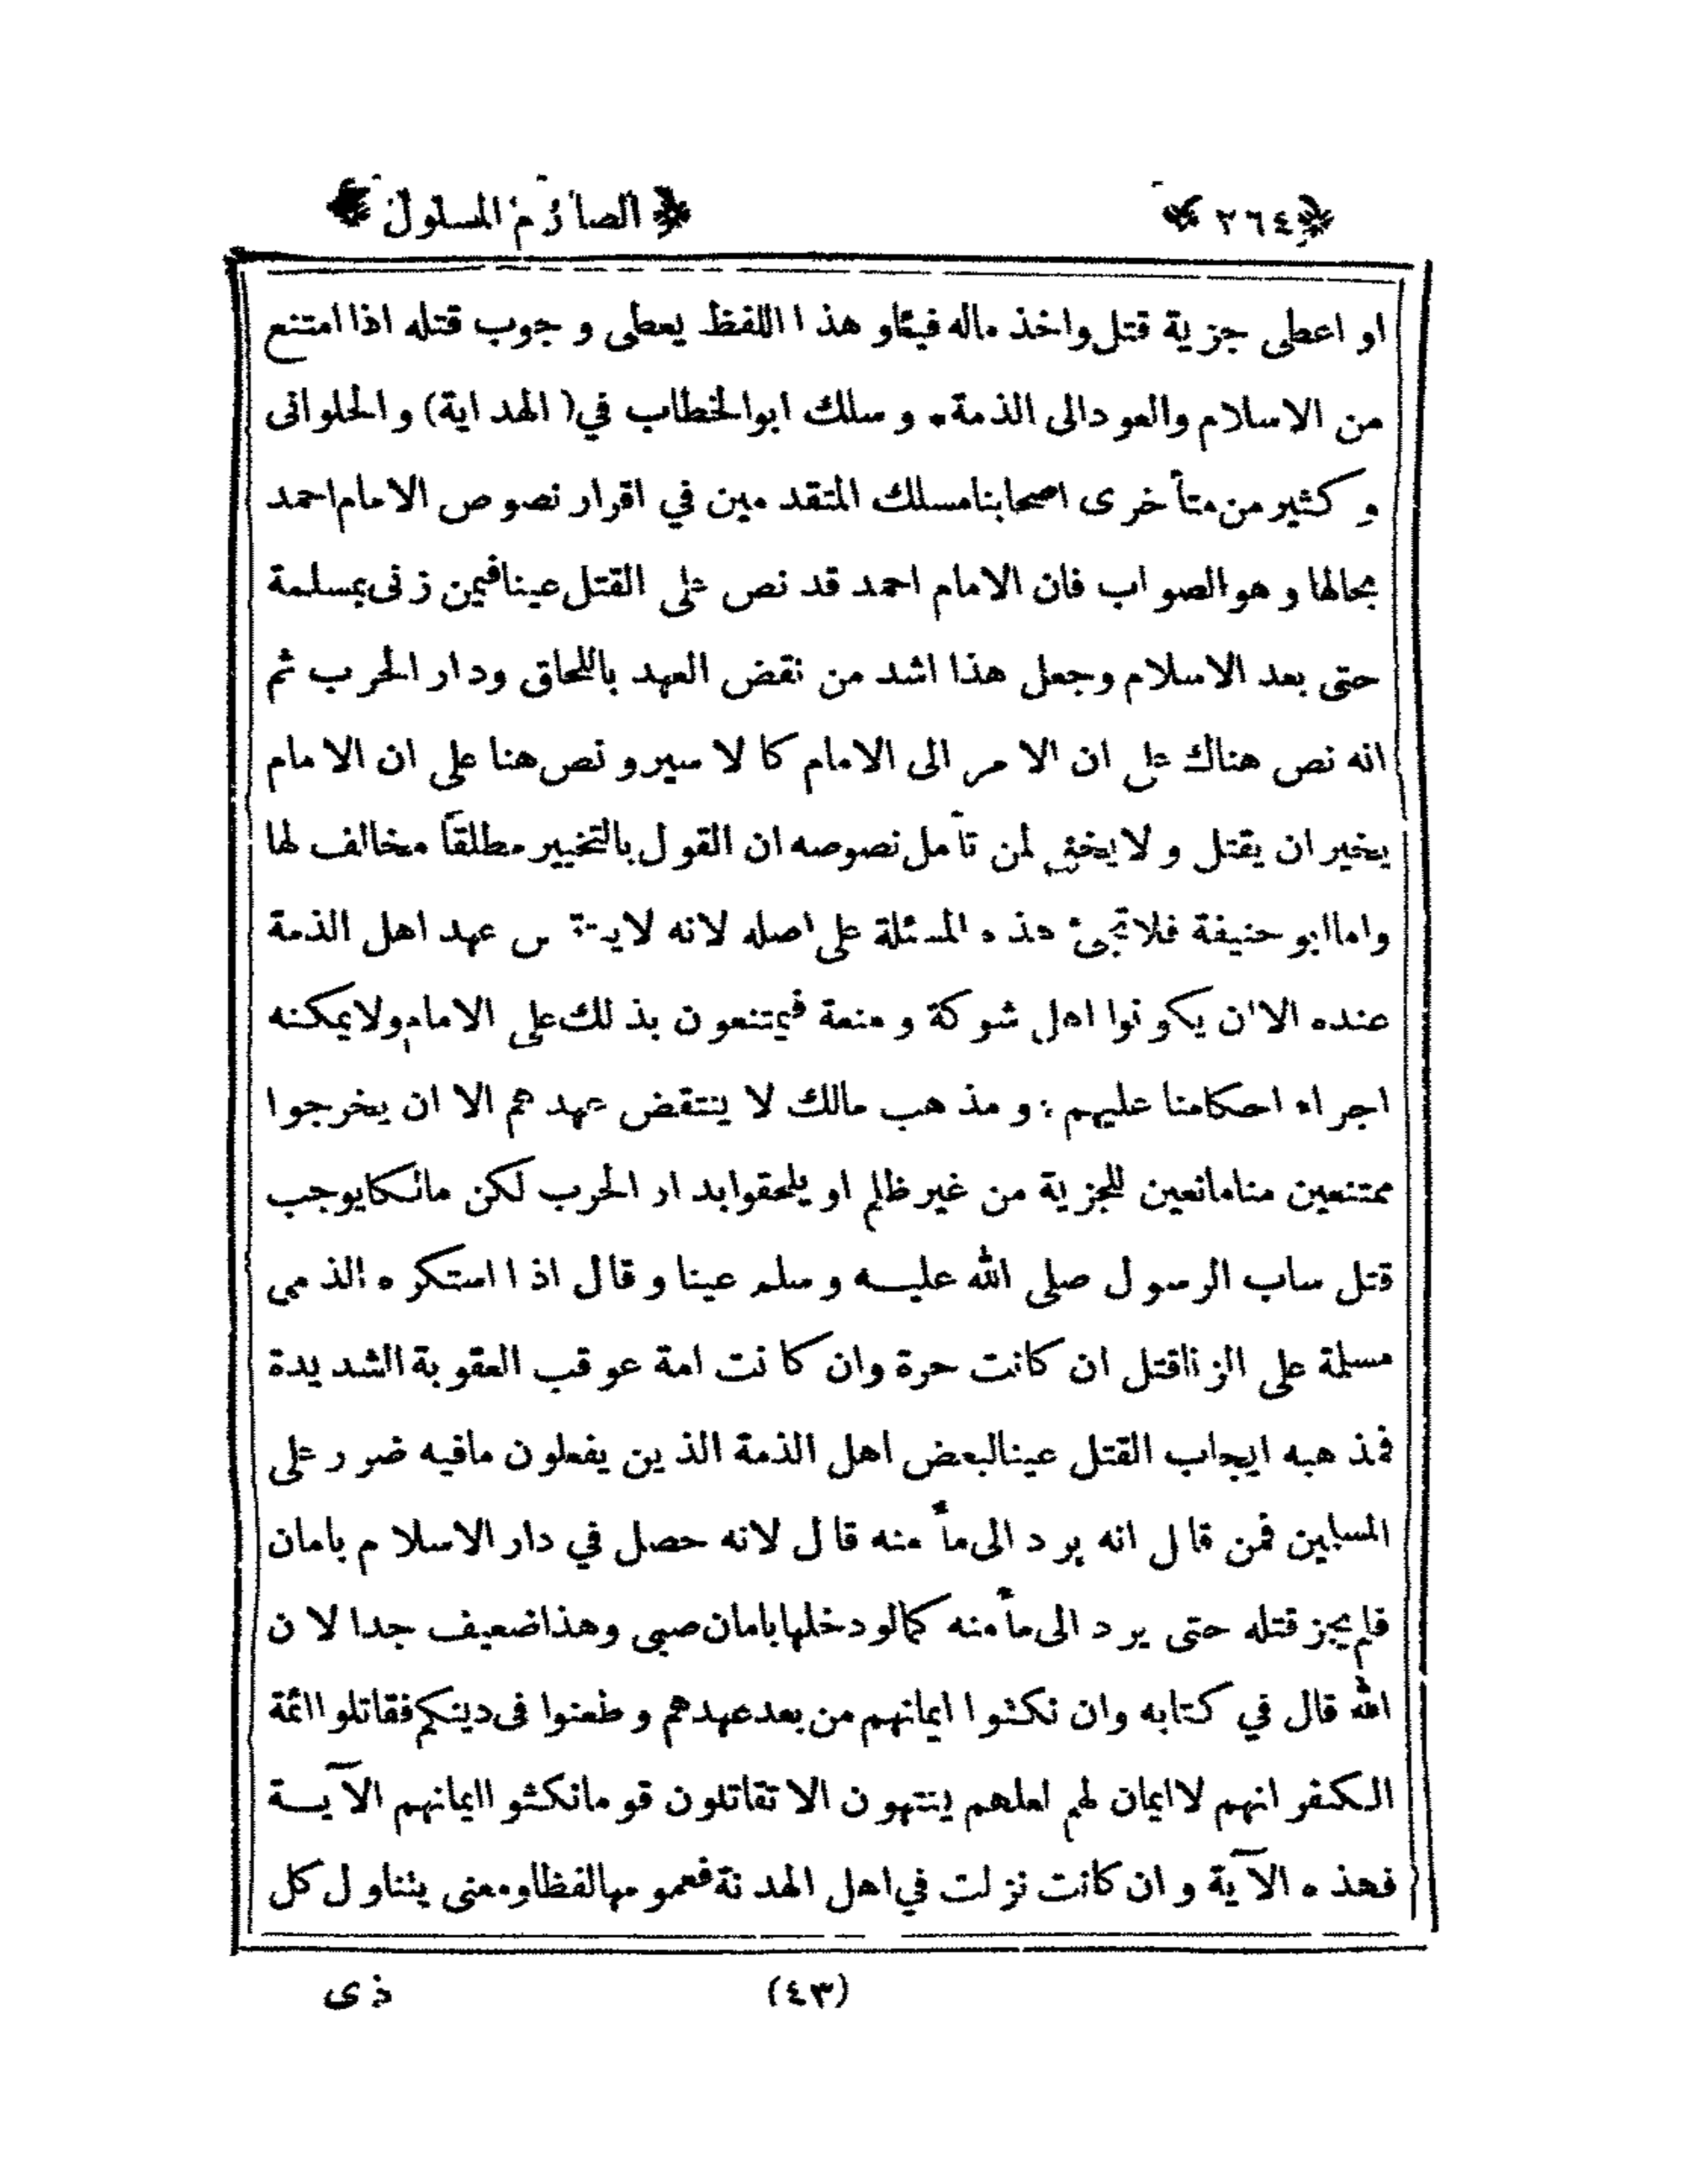 ﴿٢٦٤﴾ ﴿الصارم المسلول﴾
او اعطى جزية قتل واخذ ماله فيئاو هذا اللفظ يعطى وجوب قتله اذا امتنع
من الاسلام والعودالى الذمة • وسلك ابوالخطاب في (الهداية) والحلوانى
وكثير من متأخرى اصحابنامسلك المتقدمين في اقرار نصوص الامام احمد
بحالها وهوالصواب فان الامام احمد قد نص على القتل عينافيمن زنى بمسلمة
حتى بعد الاسلام وجعل هذا اشد من نقض العهد باللحاق ودار الحرب ثم
انه نص هناك على ان الامر الى الامام كالاسير ونص هنا على ان الامام
يخير ان يقتل ولايخفى لمن تأمل نصوصه ان القول بالتخيير مطلقاً مخالف لها
واماابو حنيفة فلاتجىء هذه المسئلة على اصله لانه عهد اهل الذمة
عنده الاان يكونوا اهل شوكة ومنعة فيمتنعون بذلك على الامام ولايمكنه
اجراء احكامنا عليهم : ومذهب مالك لا ينتقض عهدهم الا ان يخرجوا
ممتنعين منامانعين للجزية من غير ظلم او يلحقوابدار الحرب لكن مالكايوجب
قتل ساب الرسول صلى الله عليه وسلم عينا وقال اذا استكره الذمى
مسلمة على الزناقتل ان كانت حرة وان كانت امة عوقب العقوبة الشديدة
فمذهبه ايجاب القتل عينالبعض اهل الذمة الذين يفعلون مافيه ضرر على
المسلمين فمن قال انه يرد الى مأمنه قال لانه حصل في دار الاسلام بامان
فلم يجز قتله حتى يرد الى مأمنه كمالودخلهابامان صبى وهذاضعيف جدا لان
الله قال في كتابه وان نكثوا ايمانهم من بعدعهدهم وطعنوا فى دينكم فقاتلواائمة
الكفر انهم لاايمان لهم لعلهم ينتهون الا تقاتلون قومانكثواايمانهم الآية
فهذه الآية وان كانت نزلت في اهل الهدنة فعمومهالفظاومعنى يتناول كل
(٤٣) ذى